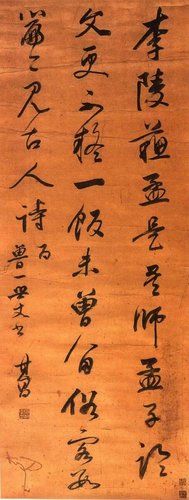 李陵蘇武是吾師孟子論
文更不疑一飯未曾留俗客數
篇今見古人詩
其昌